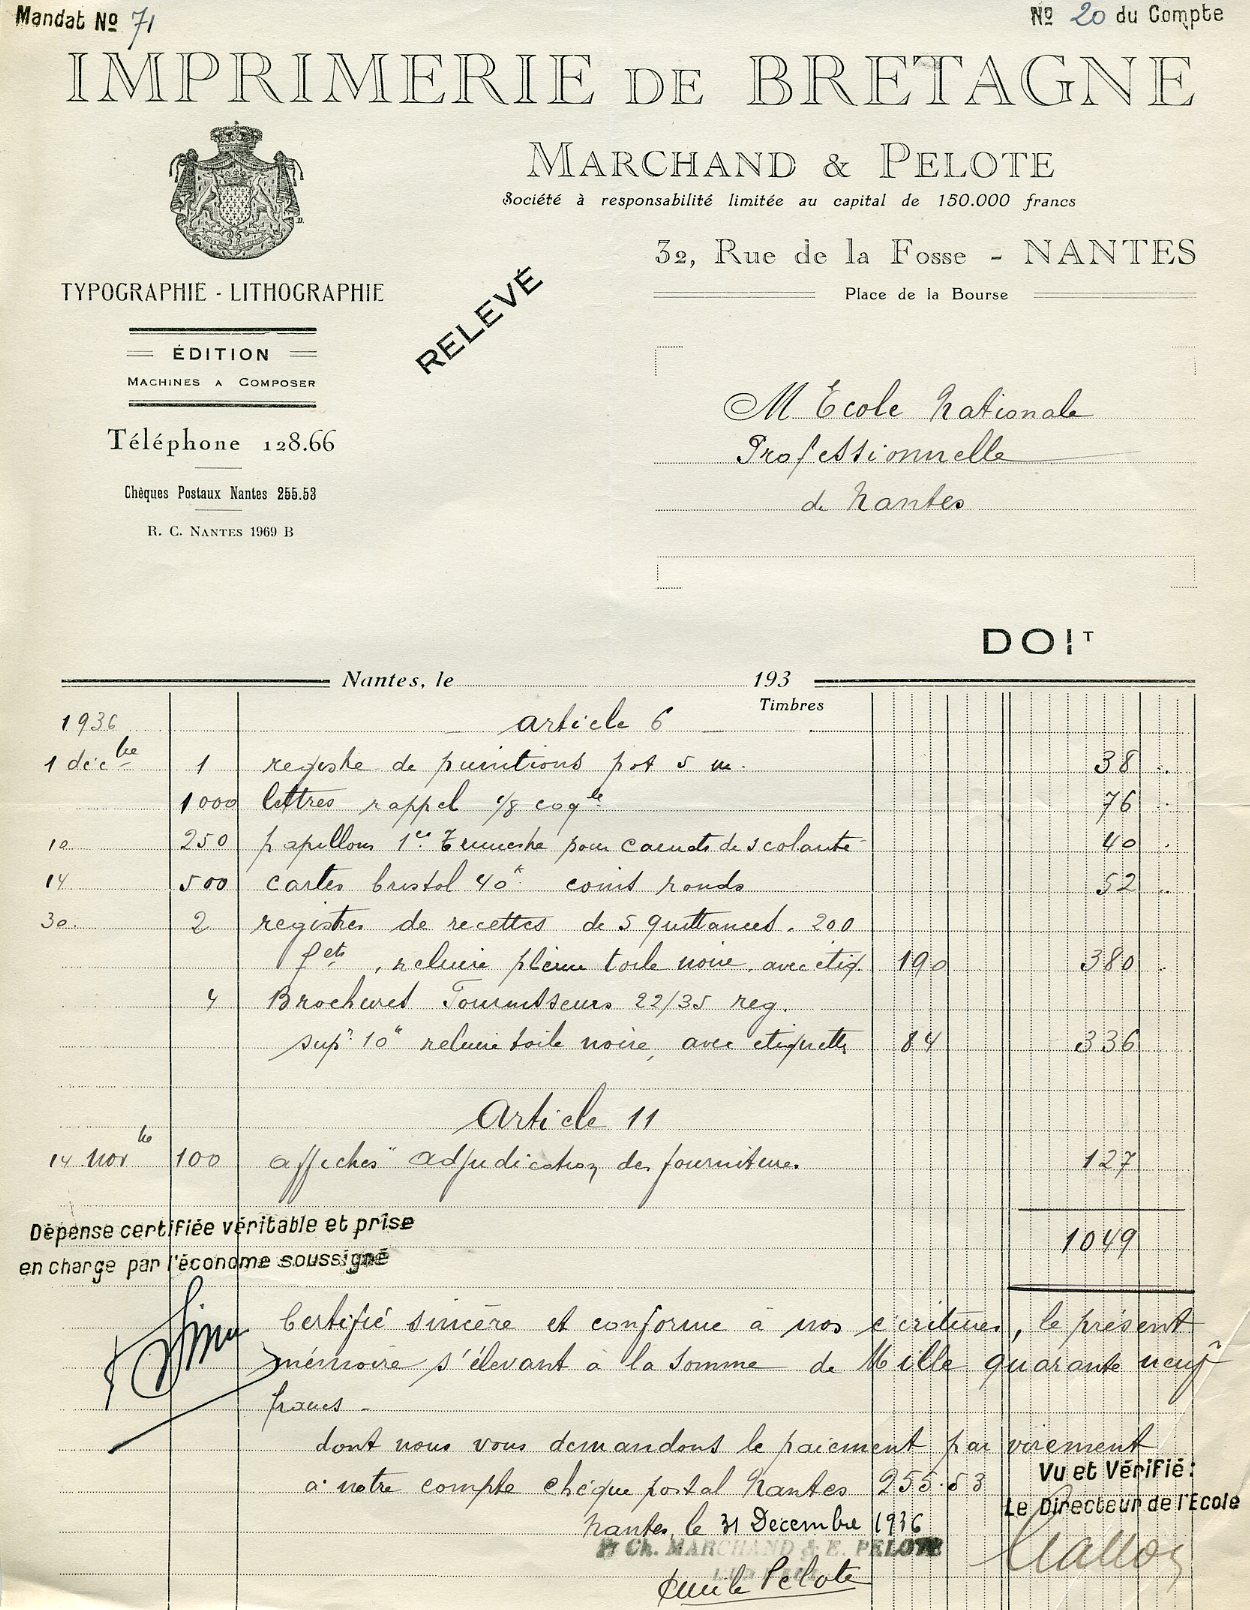 Mandat Nº 71
Nº 20 du Compte
IMPRIMERIE DE BRETAGNE
MARCHAND & PELOTE
Société à responsabilité limitée au capital de 150.000 francs
32, Rue de la Fosse - NANTES
Place de la Bourse
TYPOGRAPHIE - LITHOGRAPHIE
ÉDITION
MACHINES A COMPOSER
Téléphone 128.66
Chèques Postaux Nantes 255.53
R. C. NANTES 1969 B
RELEVÉ
M École Nationale
Professionnelle
de Nantes
DOIT
Nantes, le 193
Timbres
1936 Article 6
1 décbre 1 registre de punitions pot 5 m. 38
1000 lettres rappel 1/8 coqle 76
10 250 papillons 1er Trimestre pour carnets de scolarité 40
14 500 cartes bristol 40k coins ronds 52
30. 2 registres de recettes de 5 quittances. 200
fets, reliure pleine toile noire, avec étiq. 190 380
4 Brochures Fournisseurs 22/35 reg.
supr 10k reliure toile noire, avec étiquette 84 336
Article 11
14 Novbre 100 affiches "adjudication des fournitures. 127
Dépense certifiée véritable et prise
en charge par l'économe soussigné
1049
Certifié sincère et conforme à nos écritures, le présent
mémoire s'élevant à la somme de Mille quarante neuf
francs -
dont nous vous demandons le paiement par virement
à notre compte chèque postal Nantes 255.53
Vu et Vérifié:
Le Directeur de l'Ecole
Nantes, le 31 Decembre 1936
Ch. MARCHAND & E. PELOTE
Emile Pelote